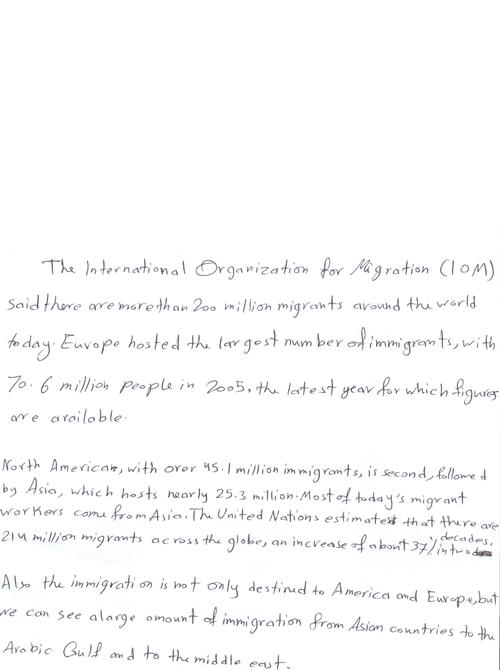 The International Organization for Migration (IOM)
said there are more than 200 million migrants around the world
today. Europe hosted the largest number of immigrants, with
70.6 million people in 2005, the latest year for which figures
are available.
North American, with over 45.1 million immigrants, is second, followed
by Asia, which hosts nearly 25.3 million. Most of today's migrant
workers come from Asia. The United Nations estimates that there are
214 million migrants across the globe, an increase of about 37% in two decades.
Also the immigration is not only destined to America and Europe, but
we can see a large amount of immigration from Asian countries to the
Arabic Gulf and to the middle east.